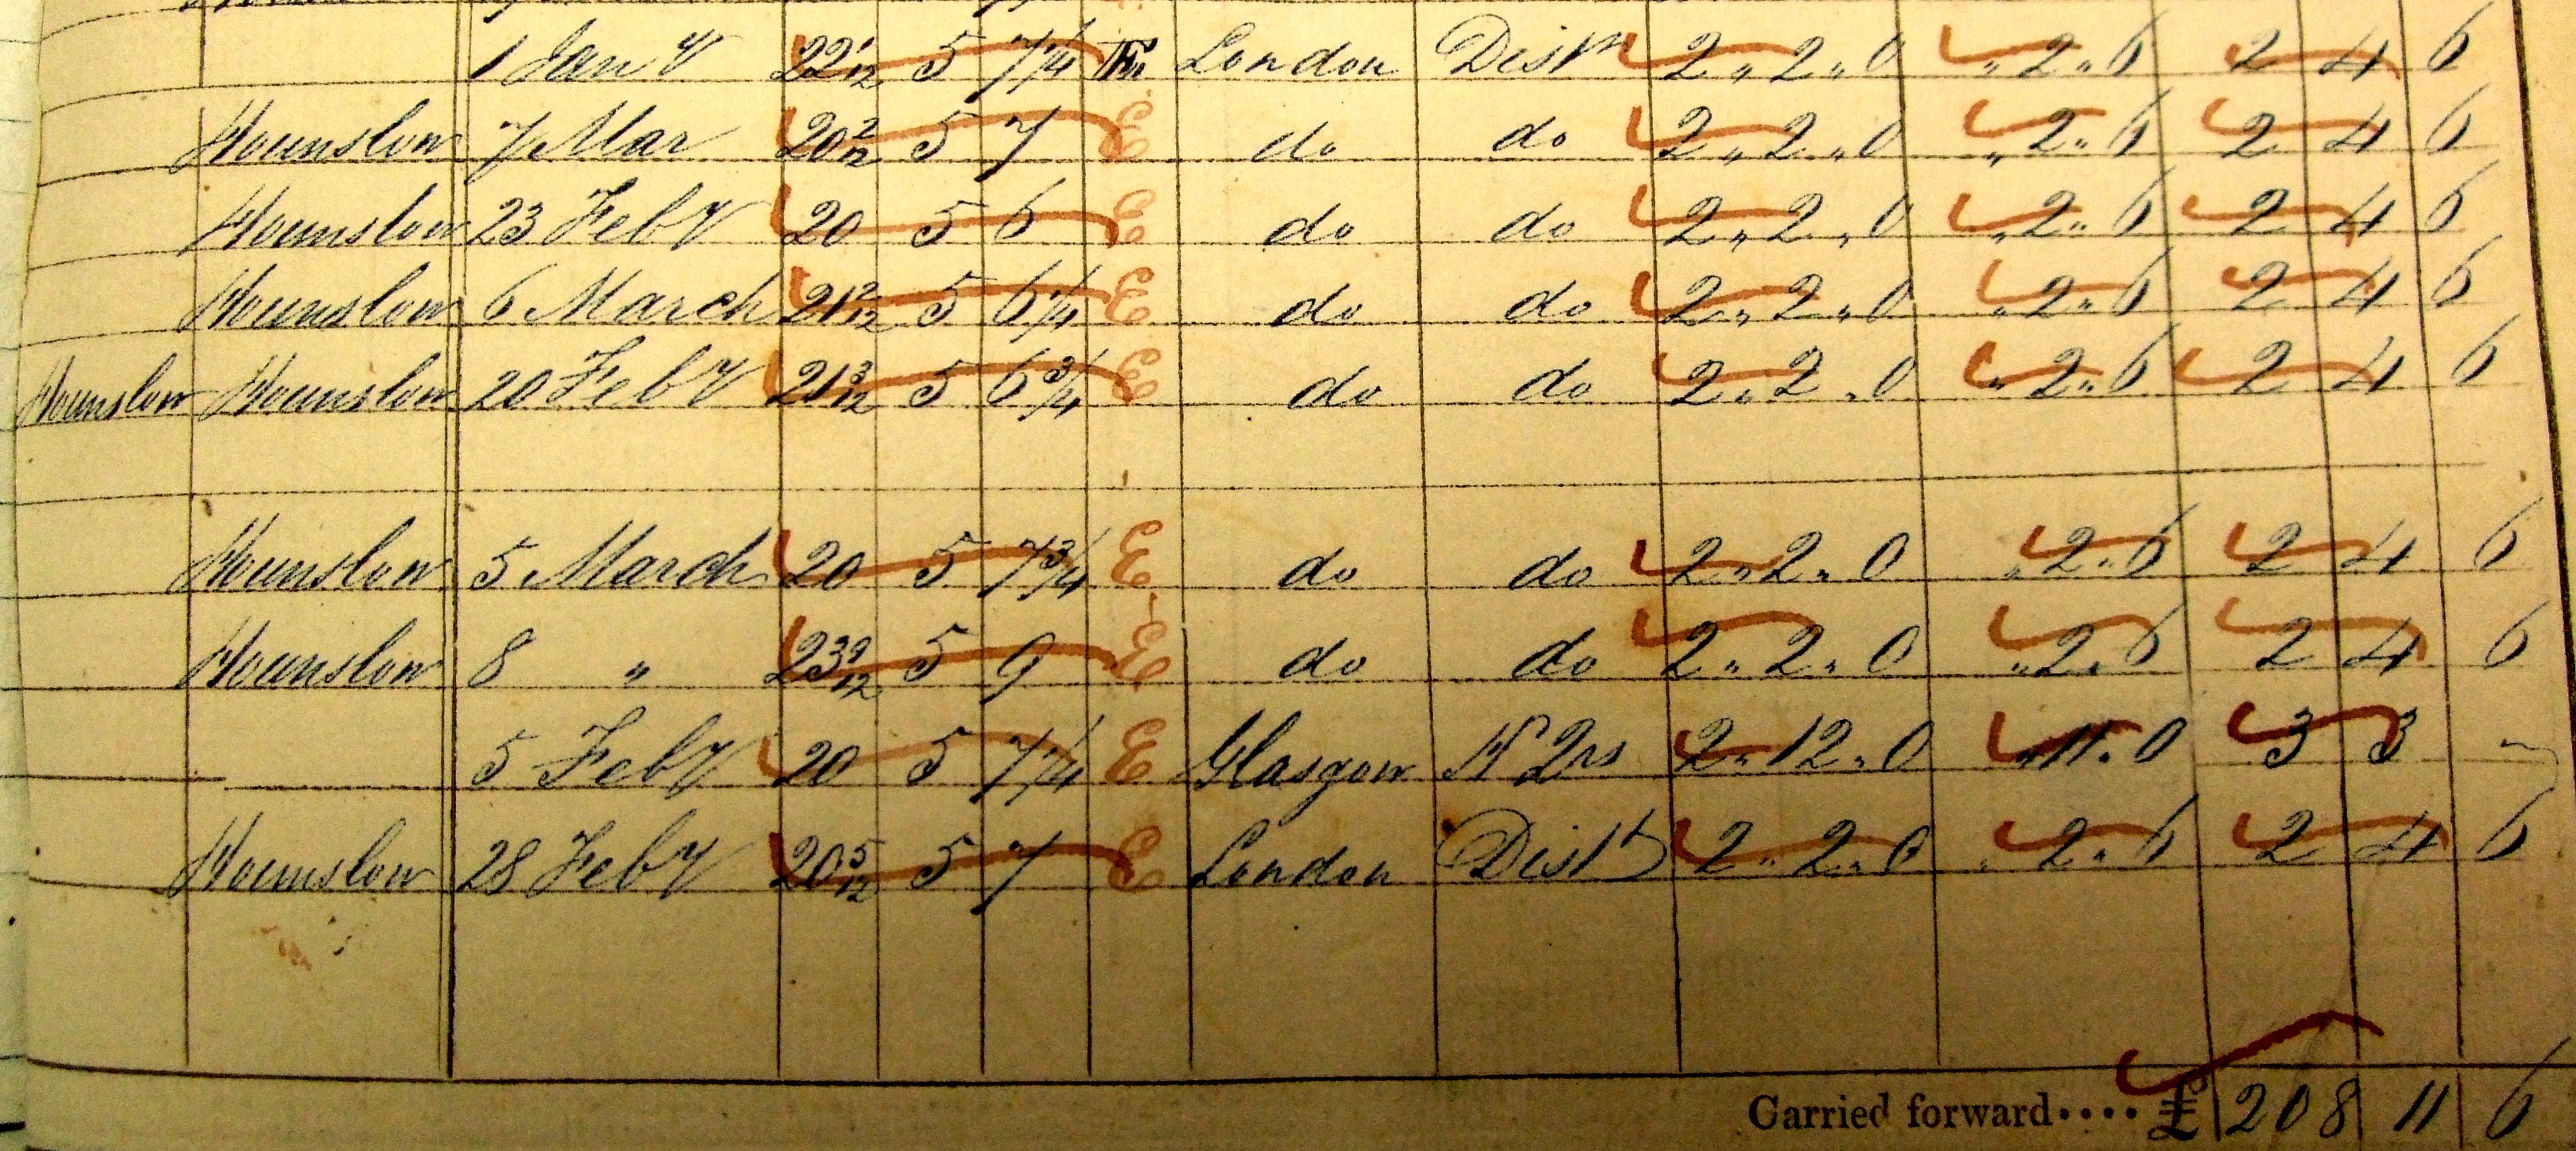 1 Jany 22 1/12 5 7 1/4 E London Dist 2 " 2 " 0 " 2 " 6 2 4 6
Hounslow 7 Mar 20 2/12 5 7 E do do 2 " 2 " 0 " 2 " 6 2 4 6
Hounslow 23 Feby 20 5 6 E do do 2 " 2 " 0 " 2 " 6 2 4 6
Hounslow 6 March 21 2/12 5 6 1/4 E do do 2 " 2 " 0 " 2 " 6 2 4 6
Hounslow Hounslow 20 Feby 21 3/12 5 6 3/4 E do do 2 " 2 " 0 " 2 " 6 2 4 6
Hounslow 5 March 20 5 7 3/4 E do do 2 " 2 " 0 " 2 " 6 2 4 6
Hounslow 8 " 23 9/12 5 9 E do do 2 " 2 " 0 " 2 " 6 2 4 6
5 Feby 20 5 7 1/4 E Glasgow H Qrs 2 " 12 " 0 " 11 " 0 3 3 -
Hounslow 28 Feby 20 5/12 5 7 E London Dist 2 " 2 " 0 " 2 " 6 2 4 6
Carried forward .... £ 208 11 6